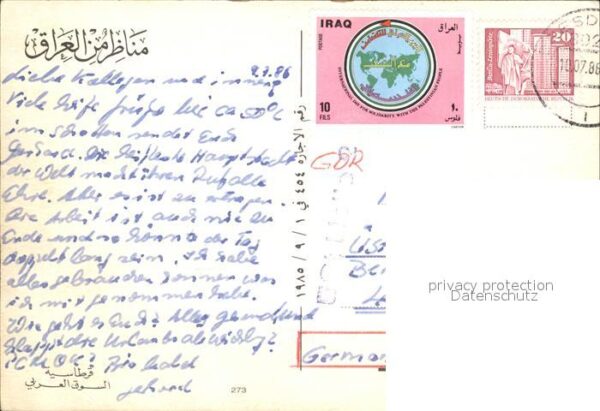 مناظر من العراق
2.7.86
Liebe Kollegen und
viele Grüße bei ca 50°C
im Schatten sendet Euch
Gerhard. Die heißeste Hauptstadt
der Welt macht ihren Zufalle
Ehre. Aber es ist zu ertragen
Die Arbeit ist auch nie zu
Ende und so könnte der Tag
doppelt lang sein. Ich habe
alles gebrauchen können was
ich mitgenommen habe.
Wie geht es Euch? Alles gesund und
klappt die Urlaubsablösung?
Bis bald
Gerhard
قرطاسية
السوق العربي
273
رقم الاجازه ٤٥٤ في ١ / ٩ / ١٩٨٥
IRAQ
العراق
POSTAGE
INTERNATIONAL DAY FOR SOLIDARITY WITH THE PALESTINIAN PEOPLE
10
FILS
١٠
فلوس
20
DEUTSCHE DEMOKRATISCHE REPUBLIK
10.07.86
GDR
Germany
privacy protection
Datenschutz